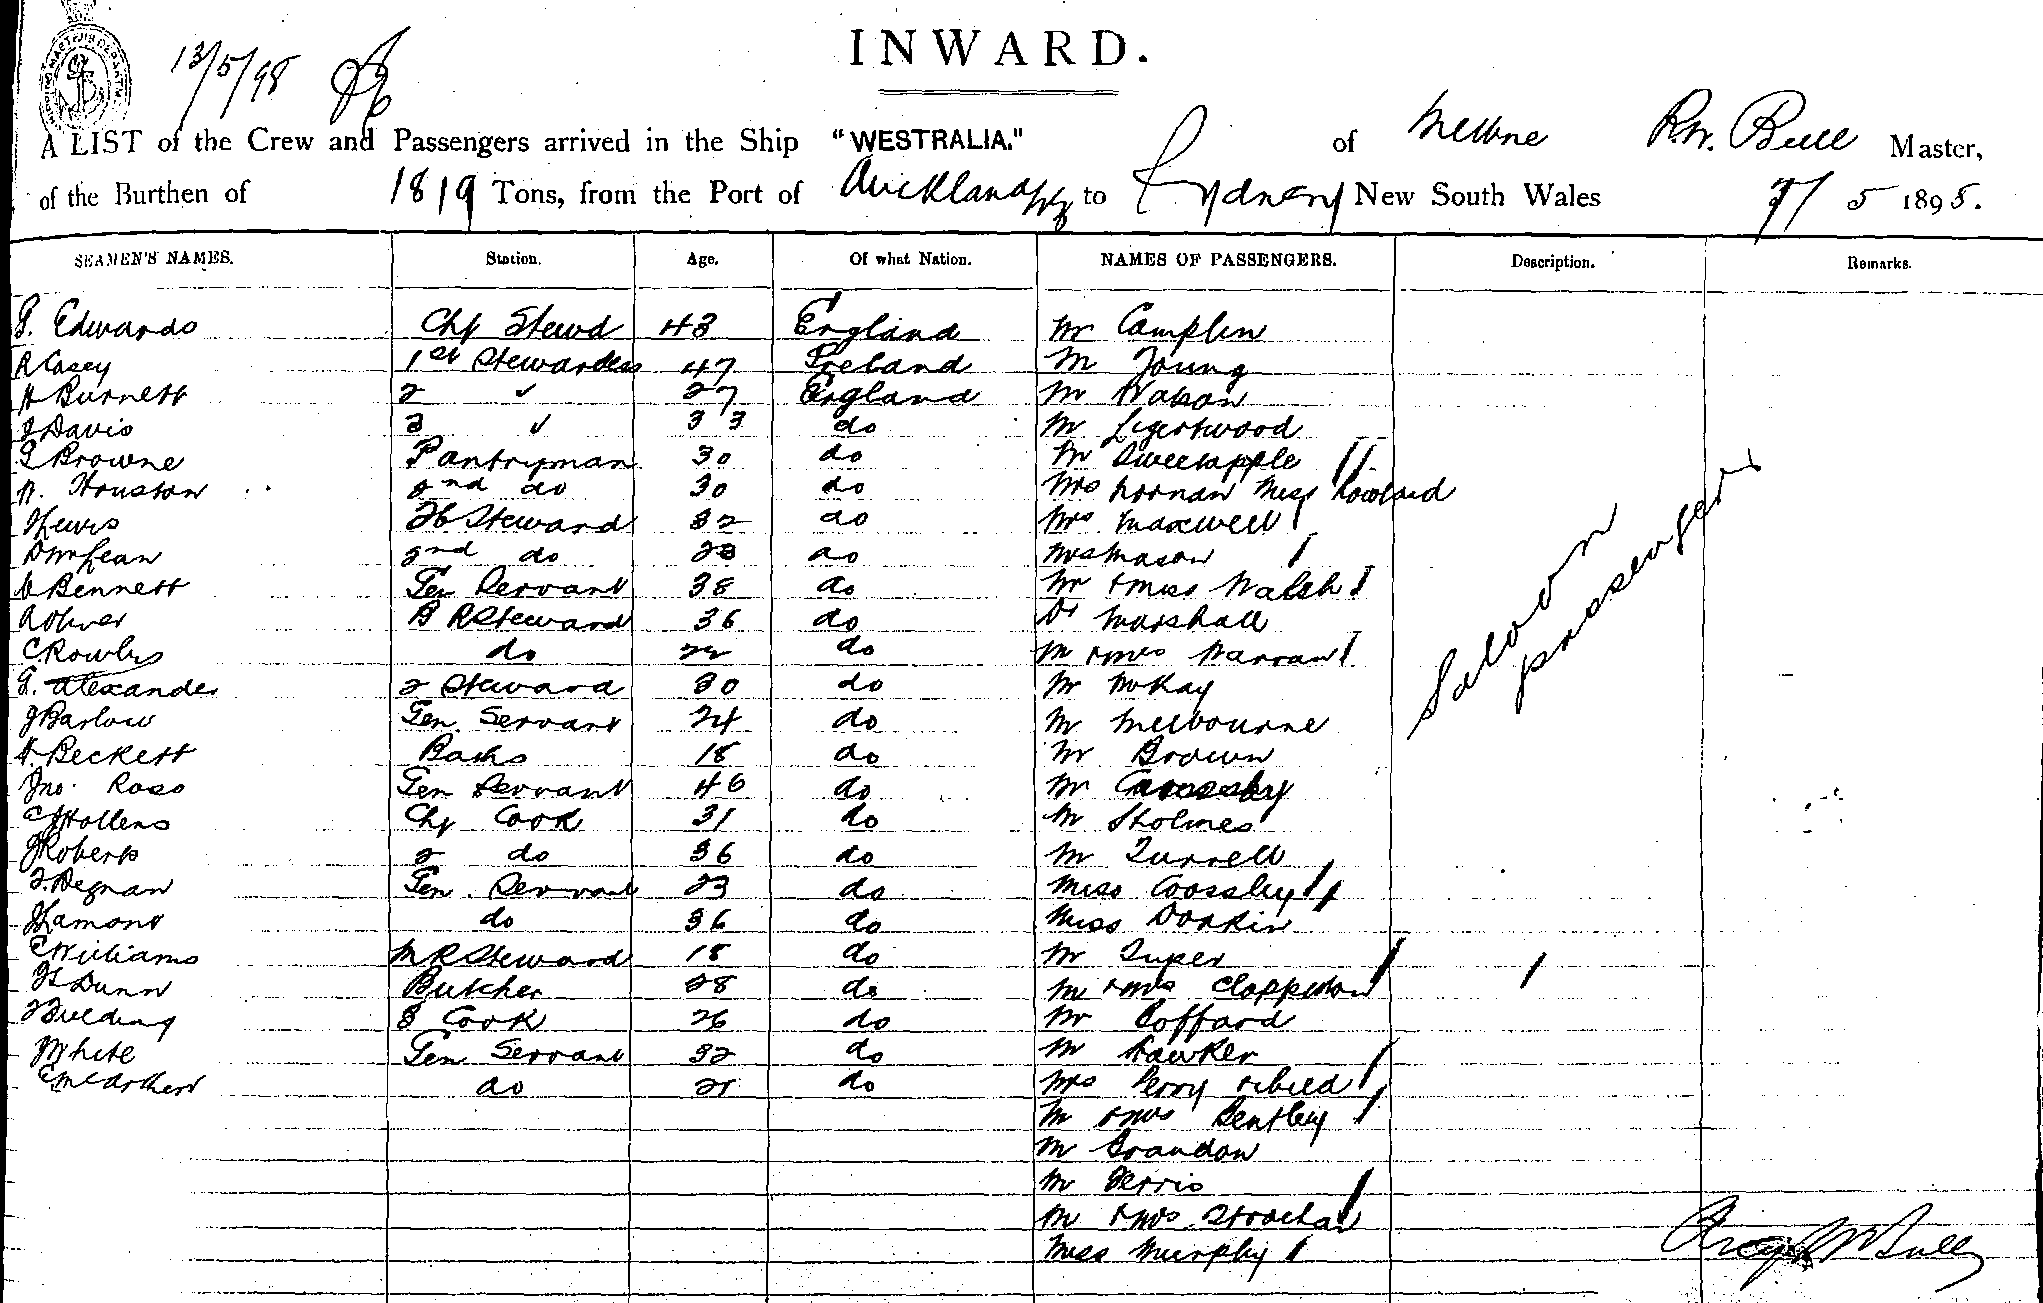 13/5/98
INWARD.
A LIST of the Crew and Passengers arrived in the Ship "WESTRALIA." of Melbne R.W. Bull Master,
of the Burthen of 1819 Tons, from the Port of Auckland NZ to Sydney New South Wales 7/5 1898.
SEAMEN'S NAMES. Station. Age. Of what Nation. NAMES OF PASSENGERS. Description. Remarks.
G. Edwards Chf Stewd 43 England Mr Camplin
R Casey 1st Stewardess 47 Ireland Mr Young
H Burnett 2 " 27 England Mr Watson
J Davis 3 " 33 do Mr Ligertwood
Browne Pantryman 30 do Mr Sweetapple
N. Houston 2nd do 30 do Mrs Noonan Miss Rowland
J Lewis FC Steward 32 do Mrs Maxwell
D McLean 2nd do 23 do Mrs Mason
Bennett Gen Servant 38 do Mr & Miss Walsh
A Oliver B R Steward 36 do Dr Marshall
C Rowles do 22 do Mr & Mrs Warran
G. Alexander 2 Steward 30 do Mr McKay
J Barlow Gen Servant 24 do Mr Melbourne
H. Beckett Baths 18 do Mr Brown
Jno. Ross Gen Servant 46 do Mr Crossley
C Hollens Chf Cook 31 do Mr Holmes
J Roberts 2 do 36 do Mr Turrell
T. Degnan Gen Servant 23 do Miss Crossley
J Lamont do 36 do Miss Dorkin
C Williams M R Steward 18 do Mr Tuper
H Dunn Butcher 28 do Mr & Mrs Clapperton
Fielding S Cook 26 do Mr Coffard
J White Gen Servant 32 do Mr Hawker
C McCarthy do 21 do Mrs Perry & child
Mr & Mrs Bentley
Mr Brandon
Mr Ferris
Mr & Mrs Strachan
Miss Murphy
Saloon passengers